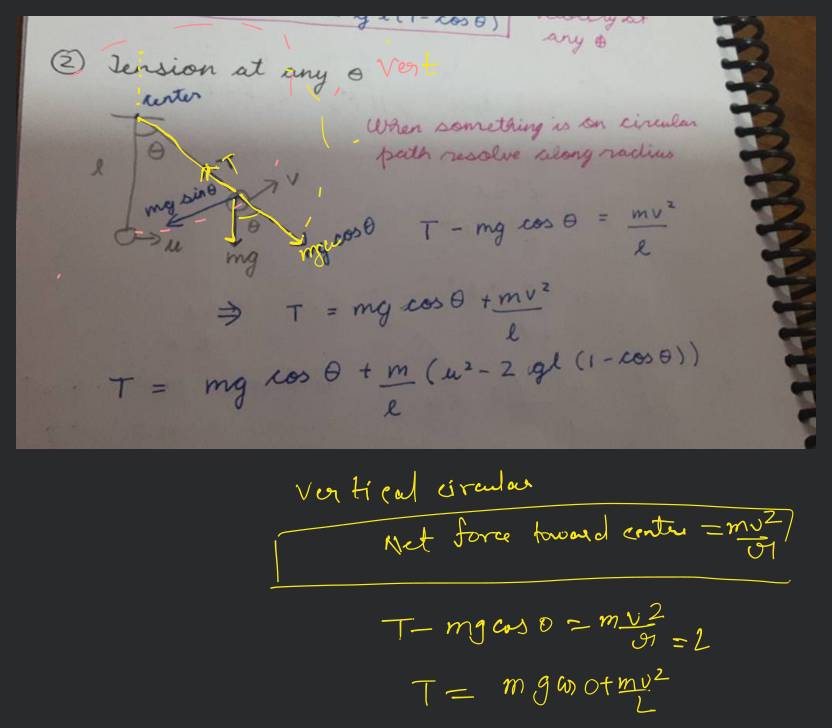 gl(1-cosθ)
any θ
② Tension at any θ Vert
center
θ
l
T
When something is on circular
path resolve along radius
mg sinθ
v
θ
u
mg
mg cosθ
T - mg cos θ = mv²/l
⇒ T = mg cos θ + mv²/l
T = mg cos θ + m/l (u² - 2 gl (1-cos θ))
Vertical circular
Net force toward centre = mv²/r
T - mg cos θ = mv²/r = L
T = mg cos θ + mv²/L